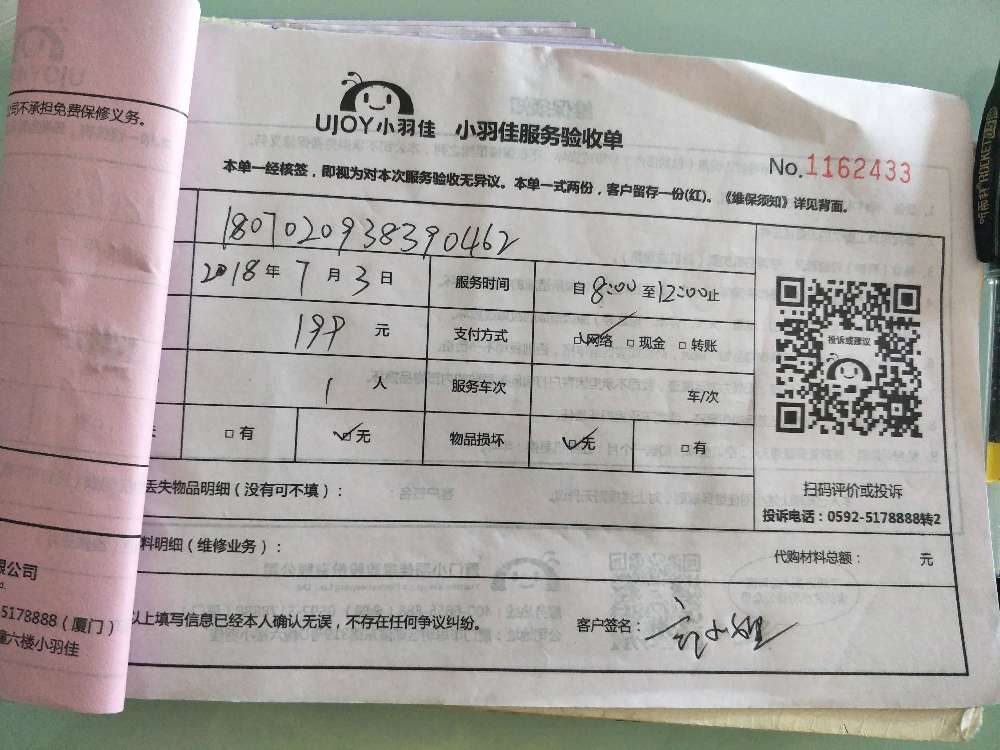 司不承担免费保修义务。
UJOY小羽佳 小羽佳服务验收单
No.1162433
本单一经核签，即视为对本次服务验收无异议。本单一式两份，客户留存一份(红)。《维保须知》详见背面。
1807020938390462
2018年7月3日 服务时间 自8:00至12:00止
199元 支付方式 网络 现金 转账
1人 服务车次 车/次
有 无 物品损坏 无 有
投诉或建议
扫码评价或投诉
投诉电话：0592-5178888转2
丢失物品明细（没有可不填）：
料明细（维修业务）： 代购材料总额： 元
以上填写信息已经本人确认无误，不存在任何争议纠纷。 客户签名：
限公司
5178888（厦门）
六楼小羽佳